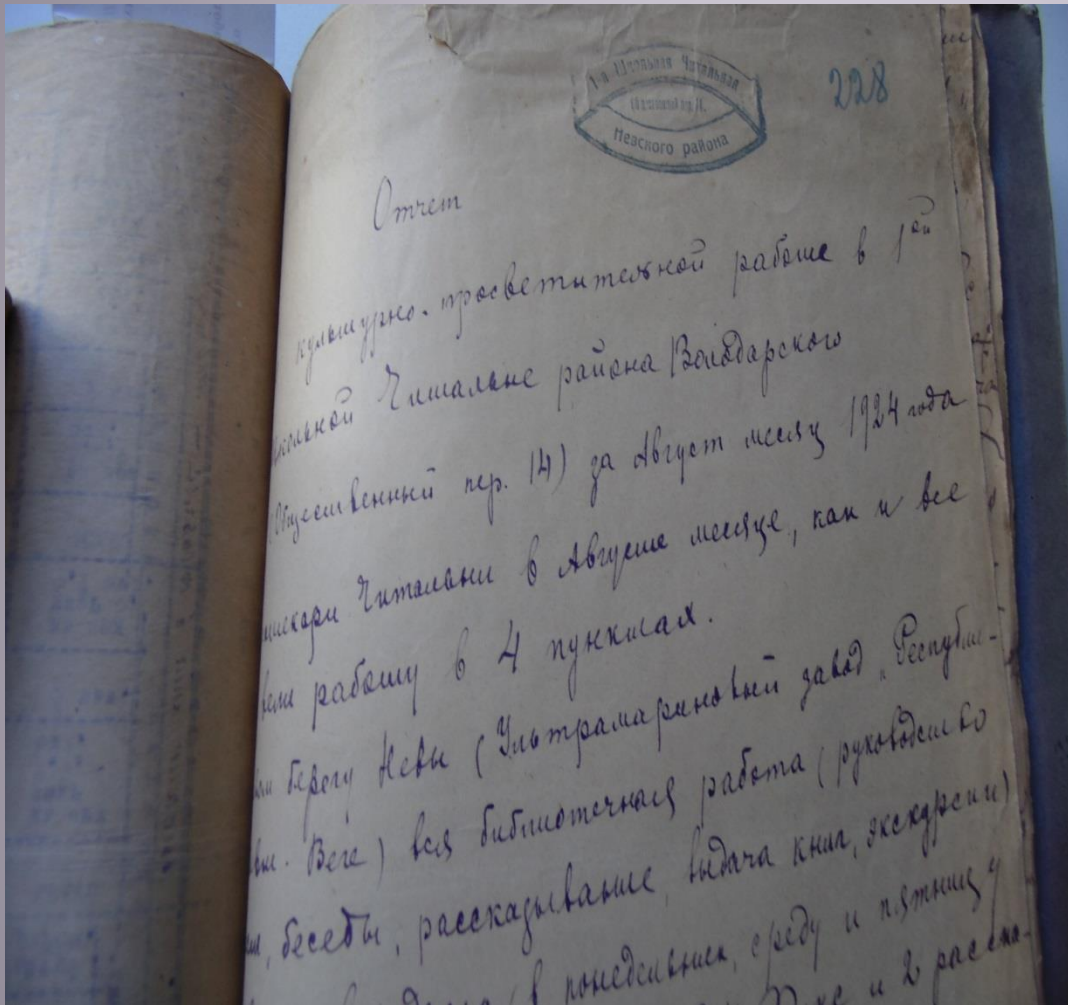 1-я Школьная Читальная
Невского района
228
Отчет
культурно-просветительной работе в 1ой
школьной Читальне района Володарского
(Общественный пер. 14) за Август месяц 1924 года
Читальни в Августе месяце, как и все
вели работу в 4 пунктах.
берегу Невы (Ультрамариновый завод, Республи-
Веге) вся библиотечная работа (руководство
беседы, рассказывание, выдача книг, экскурсии)
(в понедельник, среду и пятницу
и 2 расска-